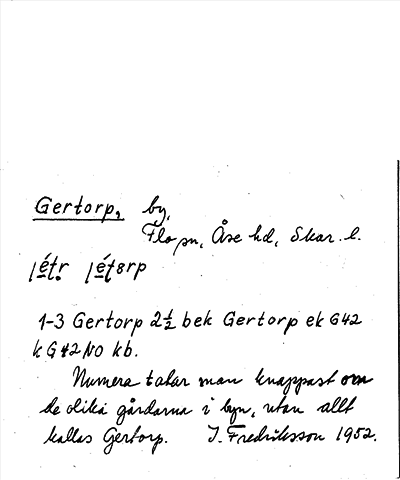 Gertorp, by,
Flo sn, Åse hd, Skar. l.
1-3 Gertorp 2½ bek Gertorp ek G42
k G42 NO kb.
Numera talar man knappast om
de olika gårdarna i byn, utan allt
kallas Gertorp. I. Fredriksson 1952.